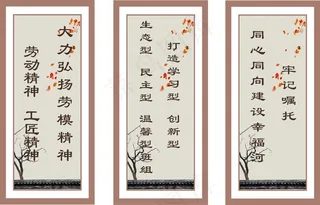 大力弘扬劳模精神
劳动精神 工匠精神
打造学习型 创新型
生态型 民主型 温馨型班组
牢记嘱托
同心同向建设幸福河